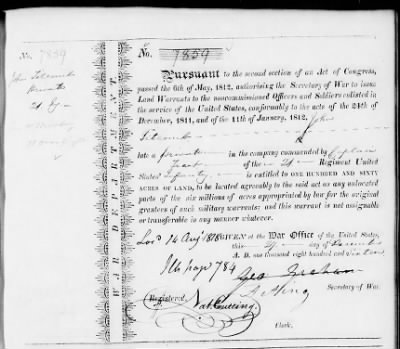 No. 7859
John Titcomb
WAR DEPARTMENT
No. 7859
Pursuant to the second section of an Act of Congress,
passed the 6th of May, 1812, authorising the Secretary of War to issue
Land Warrants to the noncommissioned Officers and Soldiers enlisted in
the service of the United States, conformably to the acts of the 24th of
December, 1811, and of the 11th of January, 1812, John
Titcomb
late a in the company commanded by Captain
of the Regiment United
States' Infantry is entitled to ONE HUNDRED AND SIXTY
ACRES OF LAND, to be located agreeably to the said act on any unlocated
parts of the six millions of acres appropriated by law for the original
grantees of such military warrants; and this warrant is not assignable
or transferable in any manner whatever.
GIVEN at the War Office of the United States,
this day of
A. D. one thousand eight hundred and
784
Geo Graham
Acting
Secretary of War.
Registered, Nat Cutting
Clerk.